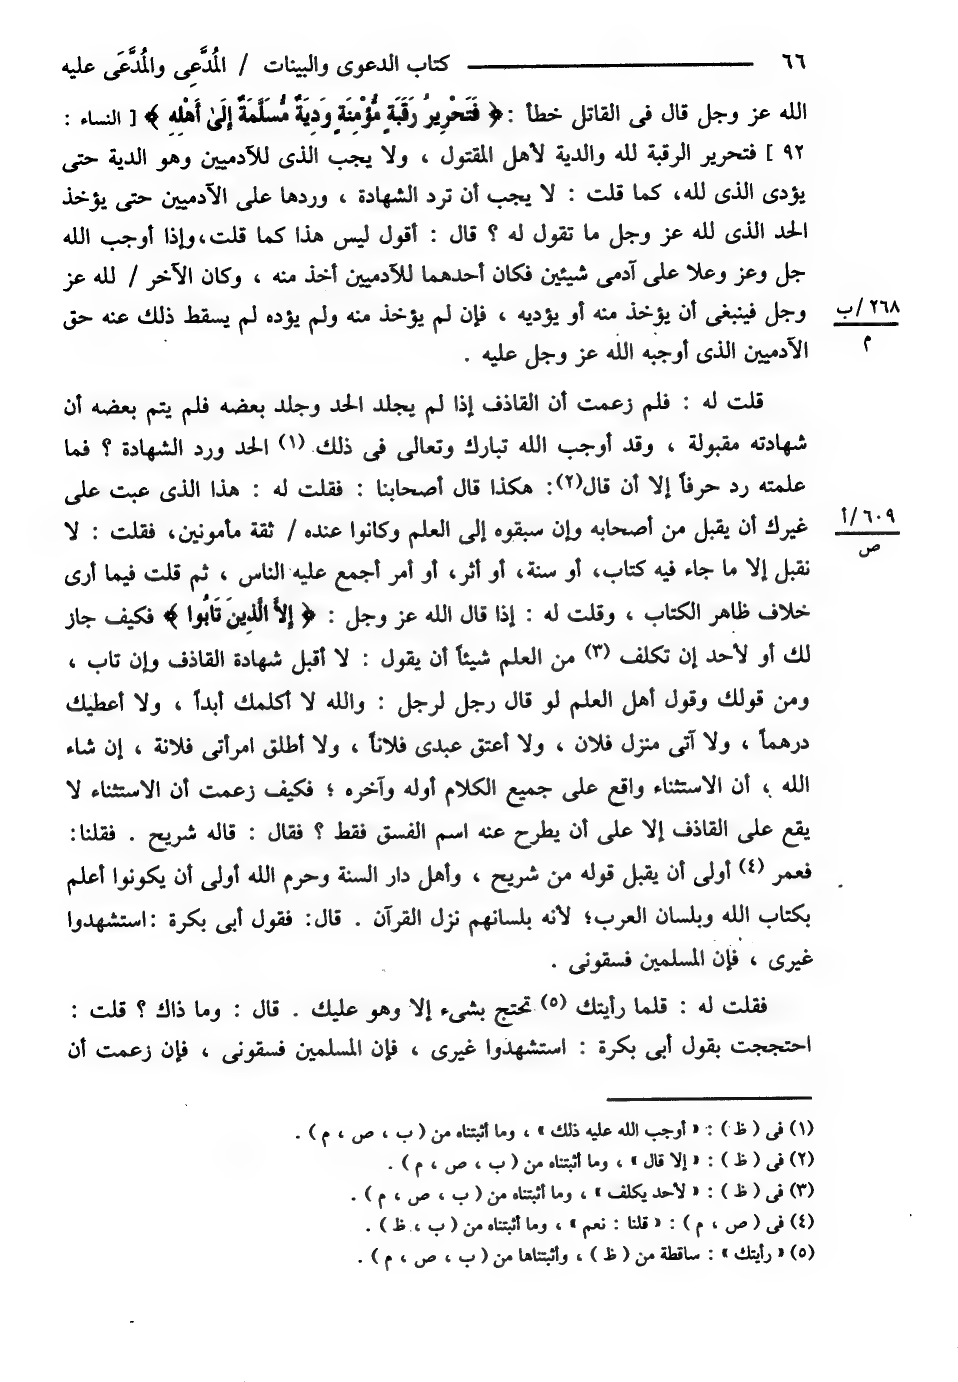 ٦٦ ــــــــــــــ كتاب الدعوى والبينات / المُدَّعِى والمُدَّعَى عليه
الله عز وجل قال فى القاتل خطأ :﴿ فَتَحْرِيرُ رَقَبَةٍ مُّؤْمِنَةٍ وَدِيَةٌ مُّسَلَّمَةٌ إِلَىٰ أَهْلِهِ ﴾ [ النساء :
٩٢ ] فتحرير الرقبة لله والدية لأهل المقتول ، ولا يجب الذى للآدميين وهو الدية حتى
يؤدى الذى لله، كما قلت : لا يجب أن ترد الشهادة ، وردها على الآدميين حتى يؤخذ
الحد الذى لله عز وجل ما تقول له ؟ قال : أقول ليس هذا كما قلت،وإذا أوجب الله
جل وعز وعلا على آدمى شيئين فكان أحدهما للآدميين أخذ منه ، وكان الآخر / لله عز
وجل فينبغى أن يؤخذ منه أو يؤديه ، فإن لم يؤخذ منه ولم يؤده لم يسقط ذلك عنه حق
٢٦٨/ب
م
الآدميين الذى أوجبه الله عز وجل عليه .
قلت له : فلم زعمت أن القاذف إذا لم يجلد الحد وجلد بعضه فلم يتم بعضه أن
شهادته مقبولة ، وقد أوجب الله تبارك وتعالى فى ذلك (١) الحد ورد الشهادة ؟ فما
علمته رد حرفاً إلا أن قال(٢): هكذا قال أصحابنا : فقلت له : هذا الذى عبت على
غيرك أن يقبل من أصحابه وإن سبقوه إلى العلم وكانوا عنده / ثقة مأمونين، فقلت : لا
٦٠٩/أ
ص
نقبل إلا ما جاء فيه كتاب، أو سنة، أو أثر، أو أمر أجمع عليه الناس ، ثم قلت فيما أرى
خلاف ظاهر الكتاب ، وقلت له : إذا قال الله عز وجل : ﴿ إِلاَّ الَّذِينَ تَابُوا ﴾ فكيف جاز
لك أو لأحد إن تكلف (٣) من العلم شيئاً أن يقول : لا أقبل شهادة القاذف وإن تاب ،
ومن قولك وقول أهل العلم لو قال رجل لرجل : والله لا أكلمك أبداً ، ولا أعطيك
درهماً ، ولا آتى منزل فلان ، ولا أعتق عبدى فلاناً ، ولا أطلق امرأتى فلانة ، إن شاء
الله ، أن الاستثناء واقع على جميع الكلام أوله وآخره ؛ فكيف زعمت أن الاستثناء لا
يقع على القاذف إلا على أن يطرح عنه اسم الفسق فقط ؟ فقال : قاله شريح . فقلنا:
فعمر (٤) أولى أن يقبل قوله من شريح ، وأهل دار السنة وحرم الله أولى أن يكونوا أعلم
بكتاب الله وبلسان العرب؛ لأنه بلسانهم نزل القرآن . قال: فقول أبى بكرة :استشهدوا
غيرى ، فإن المسلمين فسقونى .
فقلت له : قلما رأيتك (٥) تحتج بشىء إلا وهو عليك . قال : وما ذاك ؟ قلت :
احتججت بقول أبى بكرة : استشهدوا غيرى ، فإن المسلمين فسقونى ، فإن زعمت أن
(١) فى ( ظ ) : « أوجب الله عليه ذلك » ، وما أثبتناه من ( ب ، ص ، م ) .
(٢) فى ( ظ ) : « إلا قال » ، وما أثبتناه من ( ب ، ص ، م ) .
(٣) فى ( ظ ) : « لأحد يكلف » ، وما أثبتناه من ( ب ، ص ، م ) .
(٤) فى ( ص ، م ) : « قلنا : نعم » ، وما أثبتناه من ( ب ، ظ ) .
(٥) « رأيتك » : ساقطة من ( ظ ) ، وأثبتناها من ( ب ، ص ، م ) .